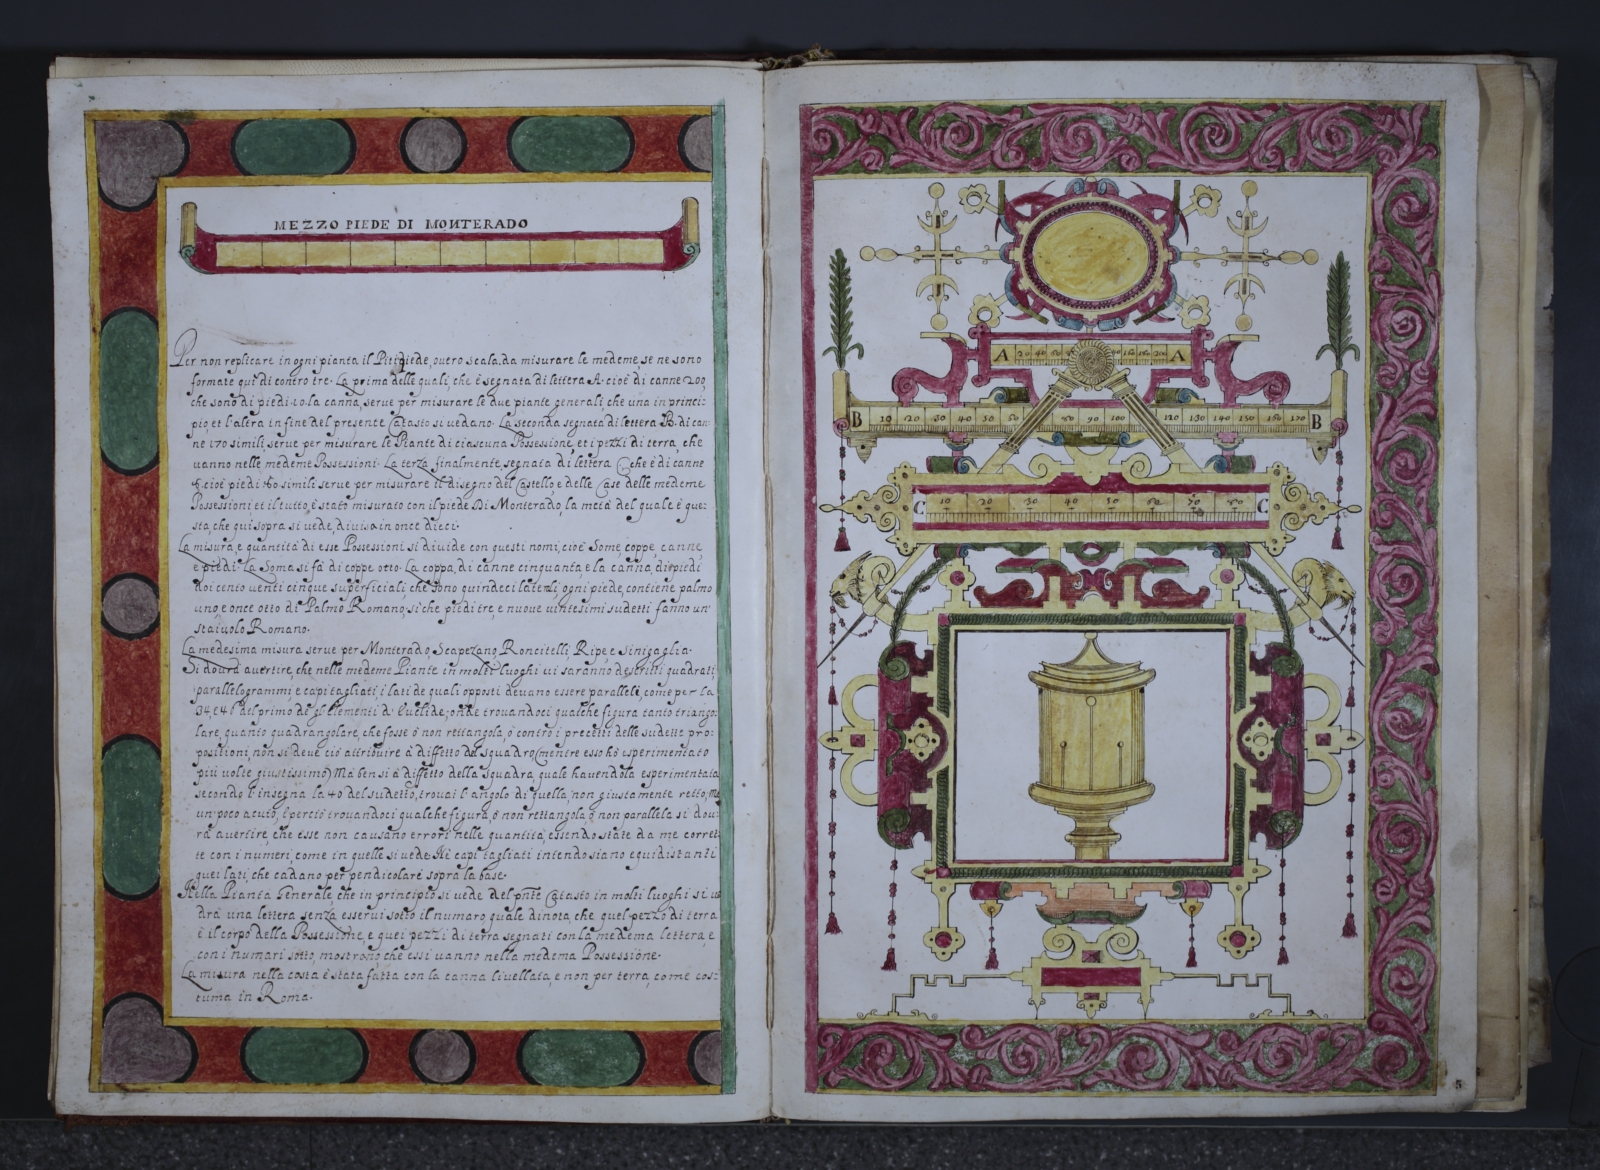 MEZZO PIEDE DI MONTERADO
Per non replicare in ogni pianta il Pitipiede, overo scala, da misurare le medeme, se ne sono
formate qui di contro tre. La prima delle quali, che è segnata di lettera A. cioè di canne 200,
che sono di piedi 10. la canna, serve per misurare le due piante generali, che una in princi:
pio, et l'altra in fine del presente Catasto si vedano. La seconda segnata di lettera B. di can:
ne 170 simili, serve per misurare le Piante di ciascuna Possessione, et i pezzi di terra, che
vanno nelle medeme Possessioni. La terza finalmente segnata di lettera C che è di canne
8. cioè piedi 80 simili serve per misurare il disegno del Castello, e delle Case delle medeme
Possessioni et il tutto, è stato misurato con il piede Di Monterado, la metà del quale è que:
sta, che qui sopra si vede, divisa in once dieci.
La misura, e quantità di esse Possessioni si divide con questi nomi, cioè Some, coppe, canne,
e piedi. La Soma si fà di coppe otto. La coppa, di canne cinquanta, e la canna, di piedi
doi cento venti cinque superficiali, che sono quindeci laterali, ogni piede, contiene palmo
uno, e once otto di Palmo Romano, si che piedi tre, e nuove vintesimi sudetti fanno un'
staivolo Romano.
La medesima misura serve per Monterado, Scapezano, Roncitelli, Ripe, e Sinigaglia.
Si dovrà avertire, che nelle medeme Piante in molti luoghi vi saranno descritti quadrati
parallelogrammi e capi tagliati, i lati de quali opposti devano essere paralleli, come per la
34, e 46 del primo de gl'Elementi d'Euclide, onde trovandoci qualche figura tanto triango:
lare, quanto quadrangolare, che fosse ò non rettangola, ò contro i precetti delle sudette pro:
positioni, non si deve ciò attribuire à diffetto del squadro (mentre esso hò esperimentato
più volte giustissimo) Ma bensi à diffetto della squadra, quale havendola esperimentata
secondo l'insegna la 40 del sudetto, trovai l'angolo di quella, non giustamente retto, mà
un poco acuto, e perciò trovandoci qualche figura, ò non rettangola ò non parallela si dov:
rà avertire, che esse non causano errori nelle quantità, essendo state da me corret:
te con i numeri, come in quelle si vede. Ne capi tagliati intendo siano equidistanti
quei lati, che cadano perpendicolari sopra la base.
Nella Pianta Generale, che in principio si vede del pnte Catasto in molti luoghi si ve
drà una lettera senza esservi sotto il numaro, quale dinota, che quel pezzo di terra
è il corpo della Possessione, e quei pezzi di terra segnati con la medema lettera, e
con i numari sotto, mostrono, che essi vanno nella medema Possessione.
La misura nella costa è stata fatta con la canna livellata, e non per terra, come cos:
tuma in Roma.
A 20 40 160 180 200 A
B 10 20 30 40 50 80 90 100 120 130 140 150 160 170 B
C 10 20 30 40 50 60 70 80 C
5